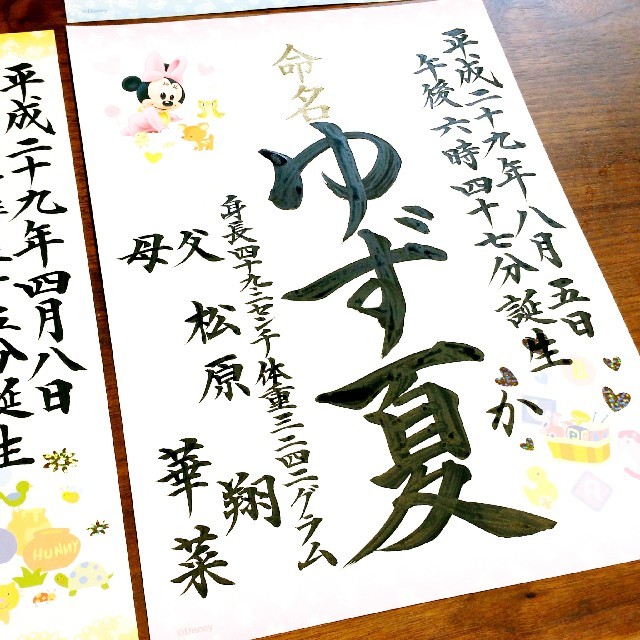 平成二十九年八月五日
午後六時四十七分誕生
か
命名
ゆず夏
身長四十九.二センチ 体重三二四二グラム
父 松原 翔
母 華菜
平成二十九年四月八日
分誕生
HUNNY
©Disney
©Disney